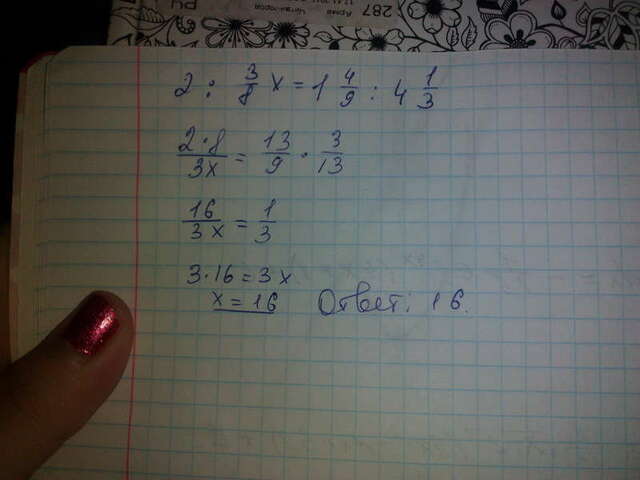 287
2 : 3/8 x = 1 4/9 : 4 1/3
2·8/3x = 13/9 · 3/13
16/3x = 1/3
3·16 = 3x
x = 16 Ответ: 16.